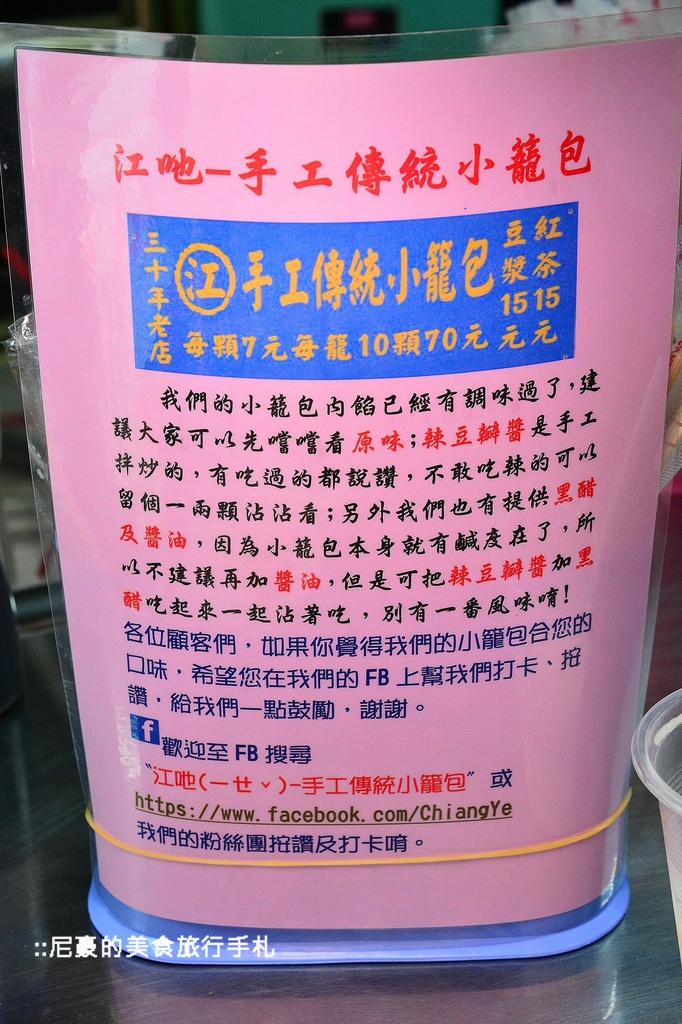 江吔-手工傳統小籠包
三十年老店
江 手工傳統小籠包
每顆7元每籠10顆70元
豆漿15元
紅茶15元
我們的小籠包內餡已經有調味過了,建
議大家可以先嚐嚐看原味;辣豆瓣醬是手工
拌炒的,有吃過的都說讚,不敢吃辣的可以
留個一兩顆沾沾看;另外我們也有提供黑醋
及醬油,因為小籠包本身就有鹹度在了,所
以不建議再加醬油,但是可把辣豆瓣醬加黑
醋吃起來一起沾著吃,別有一番風味唷!
各位顧客們,如果你覺得我們的小籠包合您的
口味,希望您在我們的FB上幫我們打卡、按
讚,給我們一點鼓勵,謝謝。
f歡迎至FB搜尋
"江吔(ㄧㄝˇ)-手工傳統小籠包" 或
https://www.facebook.com/ChiangYe
我們的粉絲團按讚及打卡唷。
::尼豪的美食旅行手札